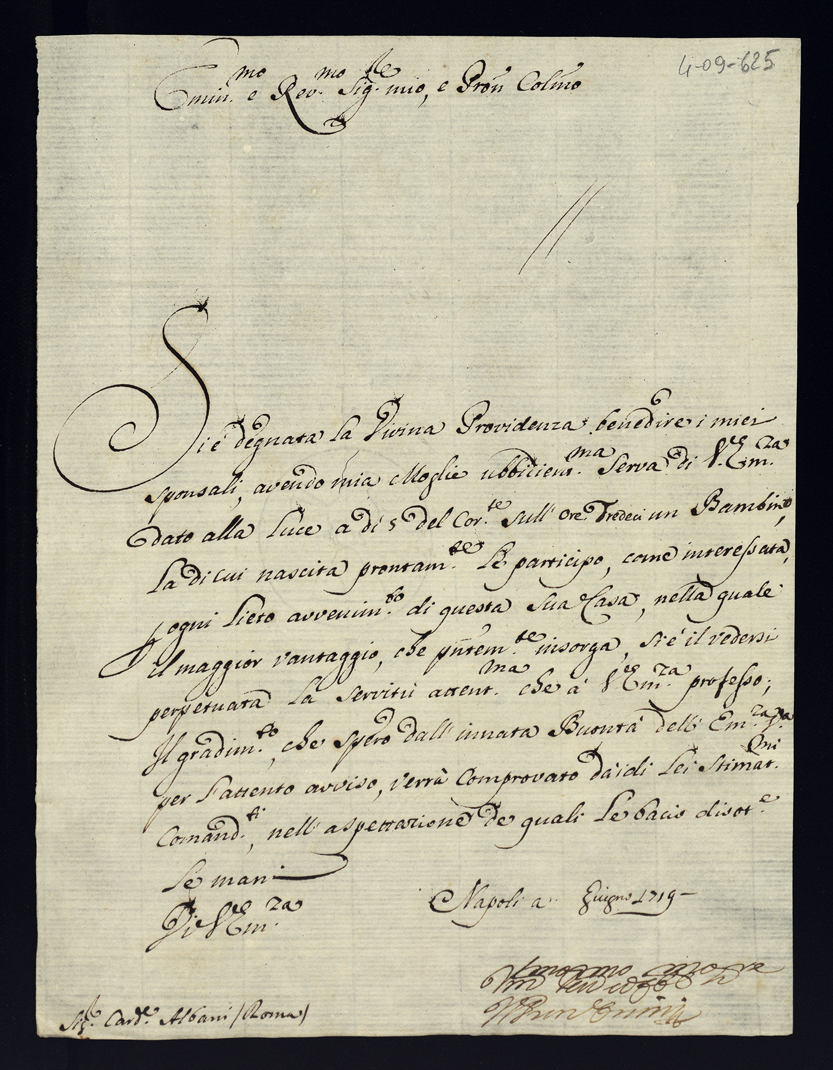 4-09-625
Emin.mo e Rev.mo Sig.re mio, e Pron Colmo
Si è degnata la Divina Providenza benedire i miei
sponsali, avendo mia Moglie ubbidient.ma Serva di V.E.m.za
dato alla luce a di 5 del Cor.te sull'ore Tredeci un Bambino,
La di cui nascita prontam.te Le participo, come interessata,
ogni lieto avvenim.to di questa Sua Casa, nella quale
il maggior vantaggio, che pntem.te insorga, si è il vedersi
perpetuata la servitù attent.ma che a V.Em.za professo;
Il gradim.to, che spero dall'innata Buontà dell'Em.za
per l'attento avviso, verrà comprovato da i di Lei stimat.mi
Comand.ti, nell'aspettazione de quali Le bacio divot.e
le mani
Di V.Em.za
Napoli a Giugno 1719
Sig.r Card.e Albani (Roma)